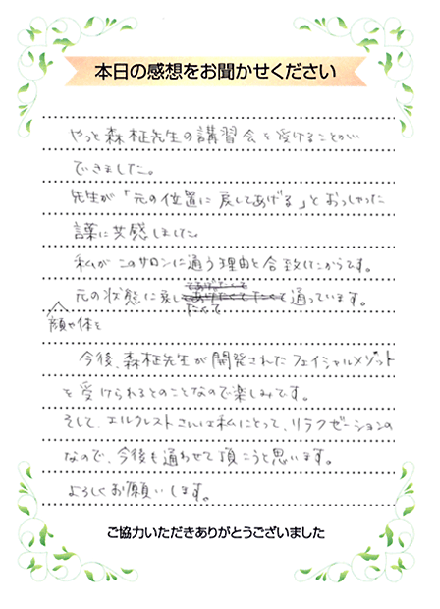 本日の感想をお聞かせください
やっと森柾先生の講習会を受けることが
できました。
先生が「元の位置に戻してあげる」とおっしゃった
言葉に共感しました。
私がこのサロンに通う理由と合致したからです。
元の状態に戻し たくて 通っています。
顔や体を
今後、森柾先生が開発されたフェイシャルメゾット
を受けられるとのことなので楽しみです。
そして、エルクレストさんは私にとって、リラクゼーションの
なので、今後も通わせて頂こうと思います。
よろしくお願いします。
ご協力いただきありがとうございました